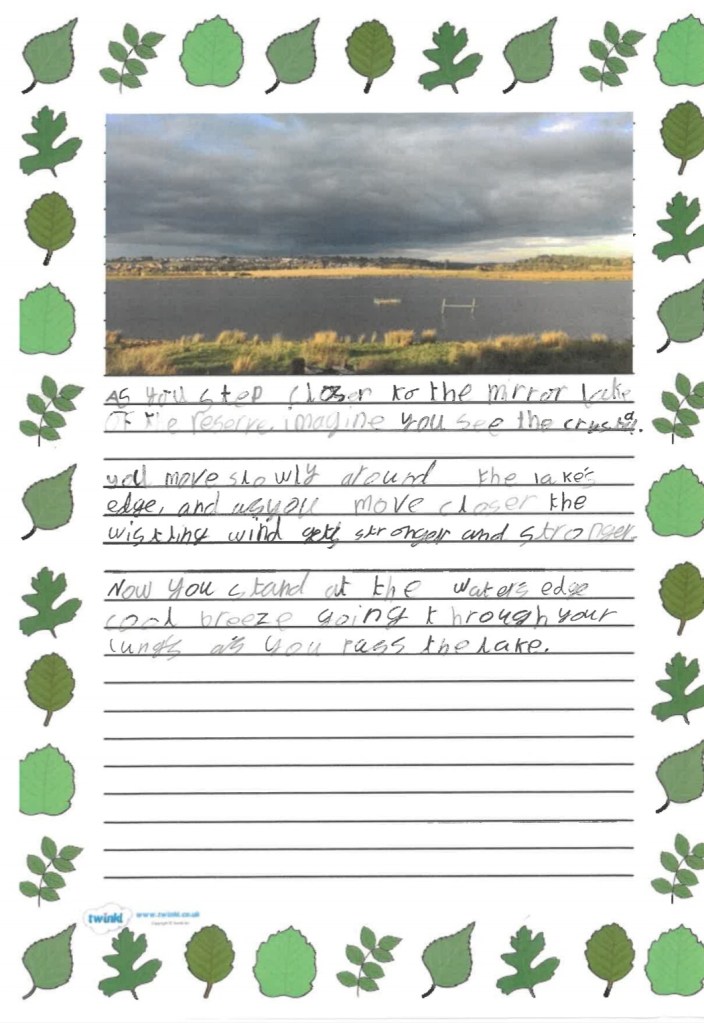 As you step closer to the mirror lake
of the reserve, imagine you see the crystal.
you move slowly around the lake's
edge, and as you move closer the
wistling wind gets stronger and stronger.
Now you stand at the water's edge
cool breeze going through your
lungs as you pass the lake.
twinkl www.twinkl.co.uk